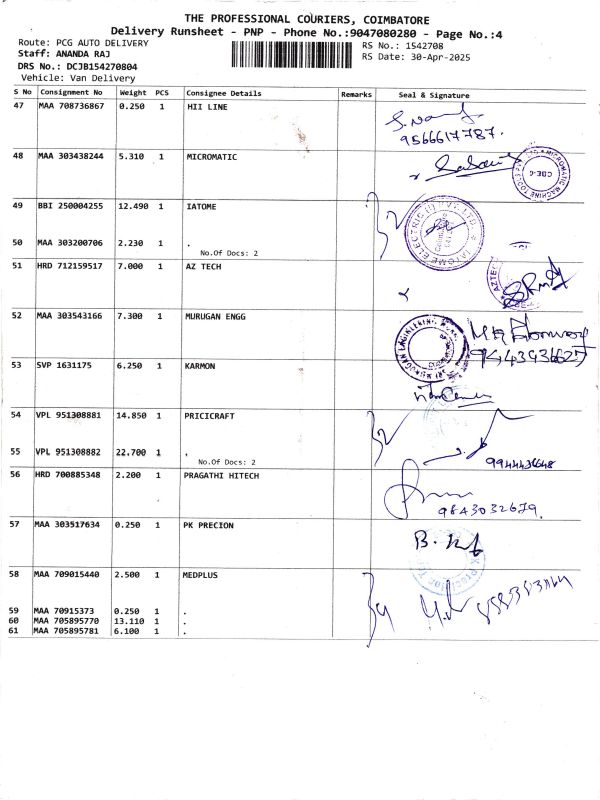 THE PROFESSIONAL COURIERS, COIMBATORE
Delivery Runsheet - PNP - Phone No.:9047080280 - Page No.:4
Route: PCG AUTO DELIVERY
RS No.: 1542708
Staff: ANANDA RAJ
RS Date: 30-Apr-2025
DRS No.: DCJB154270804
Vehicle: Van Delivery
S No Consignment No Weight PCS Consignee Details Remarks Seal & Signature
47 MAA 708736867 0.250 1 HII LINE
9566617787.
48 MAA 303438244 5.310 1 MICROMATIC
MICROMATIC MACHINE TOOLS
CBE-6
49 BBI 250004255 12.490 1 IATOME
IATOME ELECTRIC
50 MAA 303200706 2.230 1 .
No.Of Docs: 2
51 HRD 712159517 7.000 1 AZ TECH
AZTEC
52 MAA 303543166 7.300 1 MURUGAN ENGG
SRI MURUGAN ENGINEERING
53 SVP 1631175 6.250 1 KARMON
54 VPL 951308881 14.850 1 PRICICRAFT
55 VPL 951308882 22.700 1 .
No.Of Docs: 2
56 HRD 700885348 2.200 1 PRAGATHI HITECH
9843032679.
57 MAA 303517634 0.250 1 PK PRECION
58 MAA 709015440 2.500 1 MEDPLUS
59 MAA 70915373 0.250 1 .
60 MAA 705895770 13.110 1 .
61 MAA 705895781 6.100 1 .